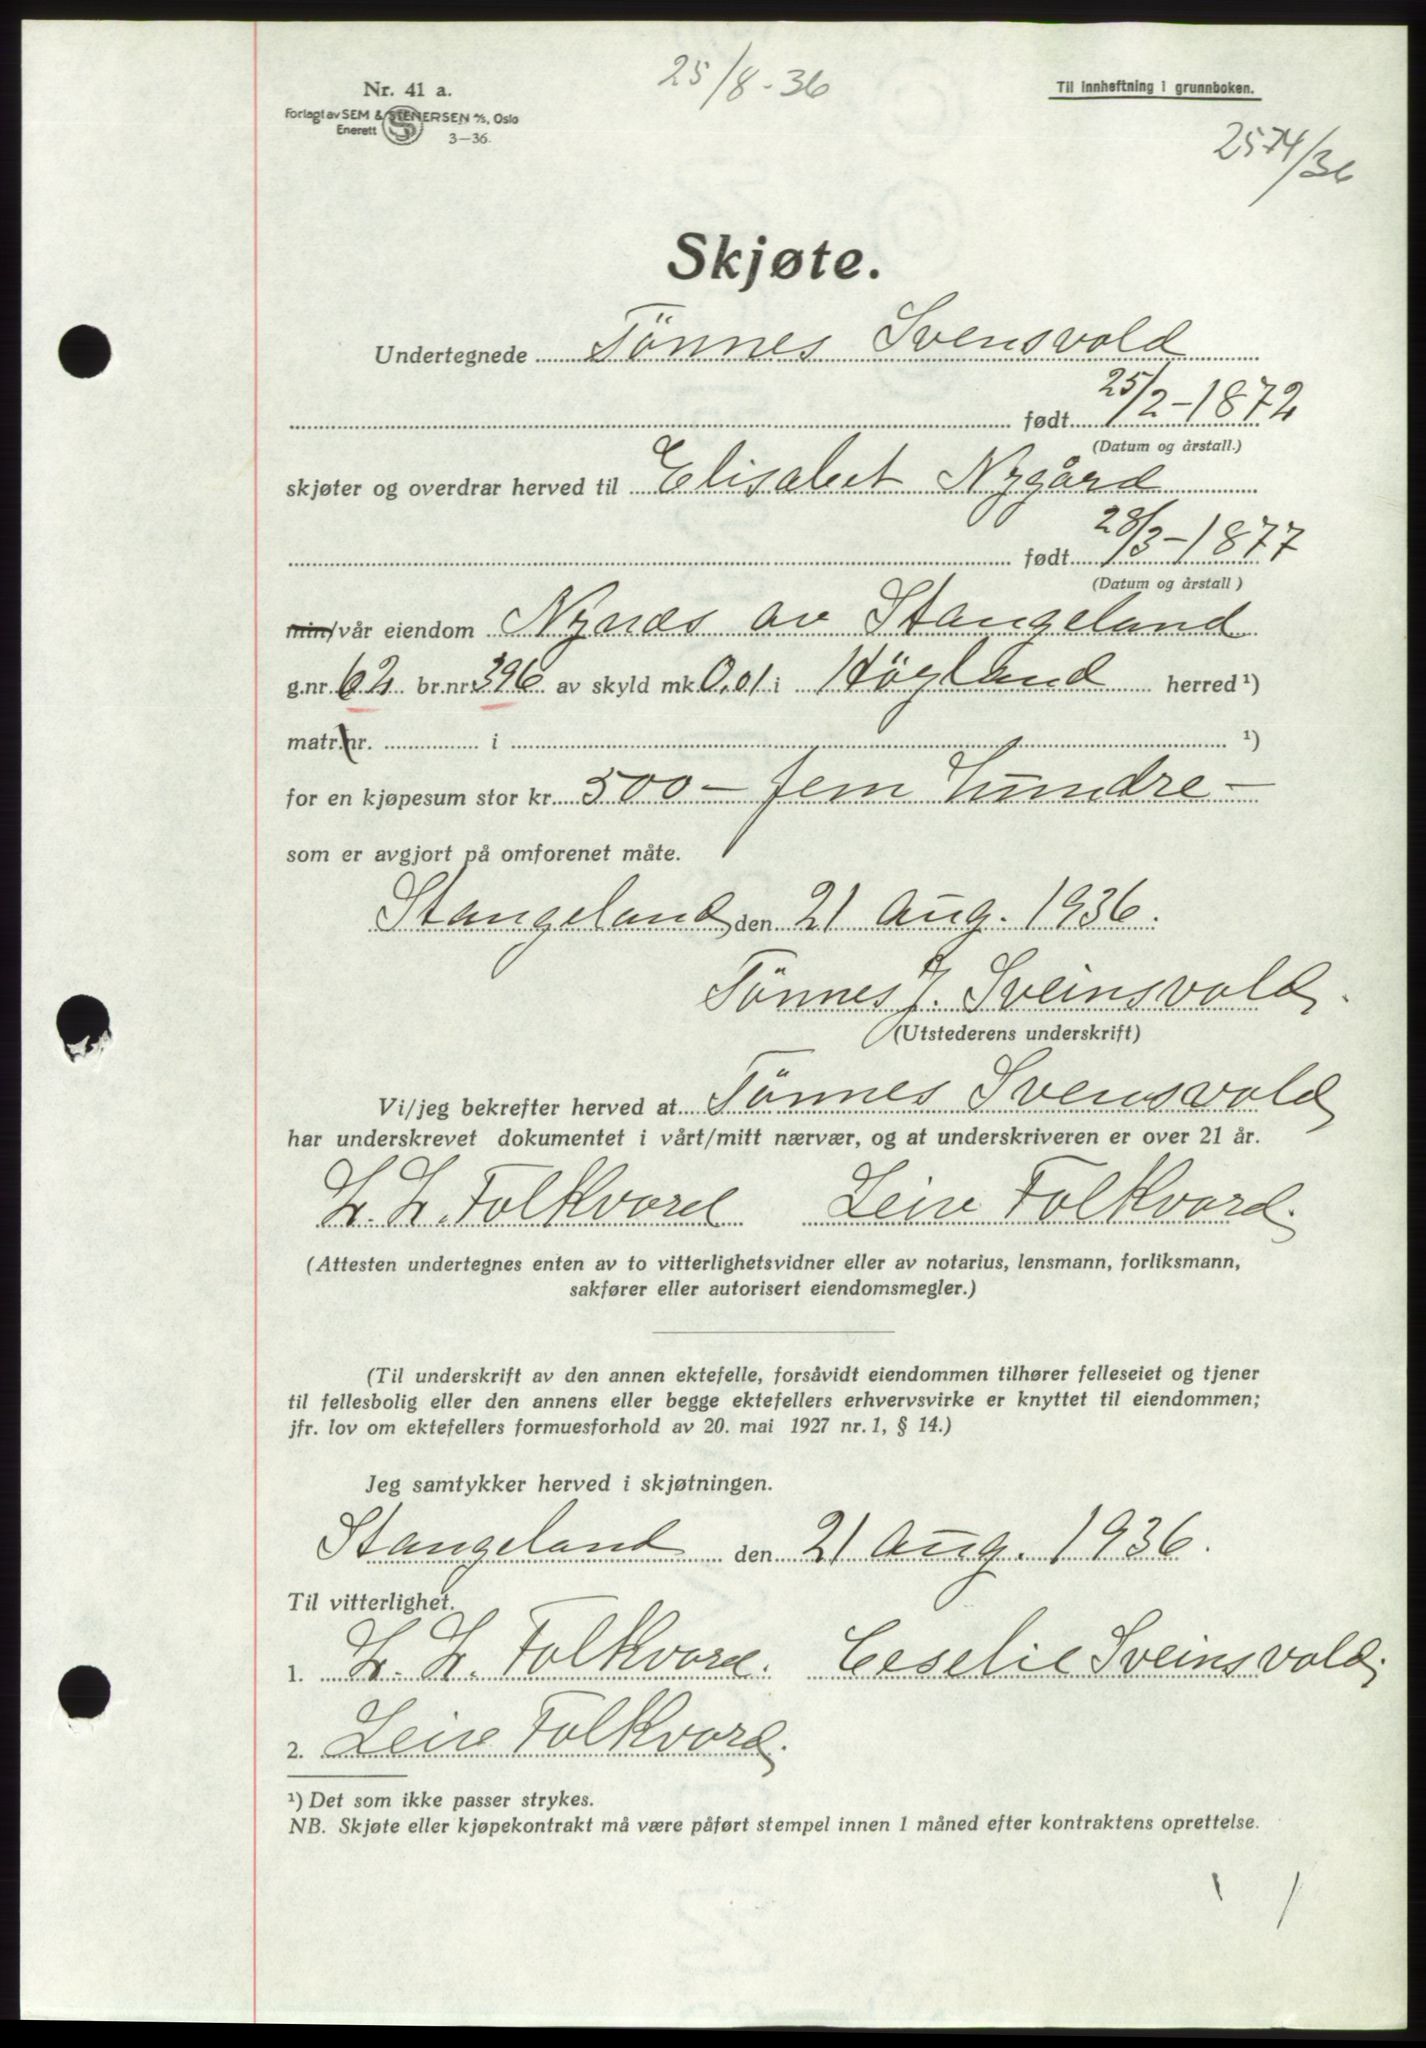 25/8-36
Nr. 41 a.
Forlagt av SEM & STENERSEN A/S, Oslo
Enerett
3-36.
Til innheftning i grunnboken.
2574/36
Skjøte.
Undertegnede Tönnes Svensvold
født 25/2-1872
(Datum og årstall.)
skjøter og overdrar herved til Elisabet Nygård
født 28/3-1877
(Datum og årstall)
min/vår eiendom Nynæs av Stangeland
g.nr. 62 br.nr. 396 av skyld mk. 0,01 i Høyland herred ¹)
matr.nr. i ¹)
for en kjøpesum stor kr. 500 - fem hundre -
som er avgjort på omforenet måte.
Stangeland den 21 Aug. 1936.
Tönnes J. Sveinsvold.
(Utstederens underskrift)
Vi/jeg bekrefter herved at Tönnes Svensvold
har underskrevet dokumentet i vårt/mitt nærvær, og at underskriveren er over 21 år.
Folkvord Folkvord.
(Attesten undertegnes enten av to vitterlighetsvidner eller av notarius, lensmann, forliksmann,
sakfører eller autorisert eiendomsmegler.)
(Til underskrift av den annen ektefelle, forsåvidt eiendommen tilhører felleseiet og tjener
til fellesbolig eller den annens eller begge ektefellers erhvervsvirke er knyttet til eiendommen;
jfr. lov om ektefellers formuesforhold av 20. mai 1927 nr. 1, § 14.)
Jeg samtykker herved i skjøtningen.
Stangeland den 21 Aug. 1936.
Til vitterlighet.
1. Folkvord. Ceselie Sveinsvold.
2. Folkvord.
¹) Det som ikke passer strykes.
NB. Skjøte eller kjøpekontrakt må være påført stempel innen 1 måned efter kontraktens oprettelse.